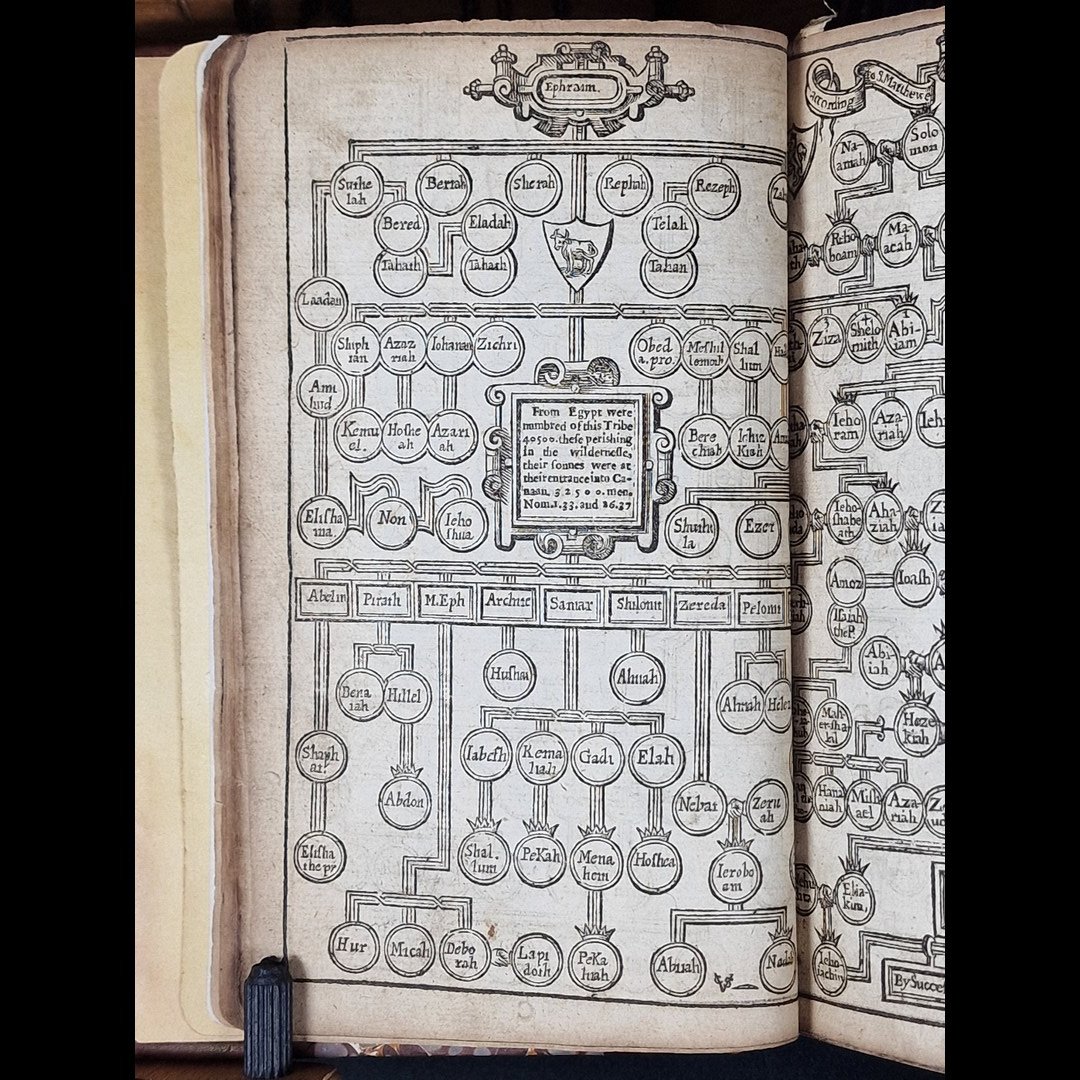 Ephraim.
Suthe
lah
Beriah
Sherah
Rephah
Rezeph
Bered
Eladah
Telah
Tahath
Tahath
Tahan
Laadan
Shiph
tan
Azaz
riah
Iohanan
Zichri
Obed
a. pro.
Meshil
lemoth
Shal
lum
Ami
hud
Kemu
el.
Hoshe
ah
Azari
ah
Bere
chiah
Ichiz
Kiah
From Egypt were
numbred of this Tribe
40500. these perishing
in the wildernesse,
their sonnes were at
their entrance into Ca-
naan. 32500. men.
Nom. 1. 33. and 26. 37
Elisha
ma.
Non
Ieho
shua
Shuthe
la
Ezer
Abelm
Pirath
M.Eph
Archite
Samar
Shilonit
Zereda
Pelonit
Bena
iah
Hillel
Hushai
Ahiah
Ahiah
Helez
Shaph
at.
Abdon
Iabesh
Rema
liah
Gadi
Elah
Nebat
Zeru
ah
Elisha
the pr
Shal.
lum
PeKah
Mena
hem
Hoshea
Ierobo
am
Hur
Micah
Debo
rah
Lapi
doth
PeKa
hiah
Abiiah
Nadab
according
to S. Matthewe
Na-
amah
Solo
mon
Reho
boam
Ma-
acah
Ziza
Shelo
mith
Abi-
iam
Ieho
ram
Aza-
riah
Ieho
shabe
ath
Aha-
ziah
Amoz
Ioash
Isaiah
the P.
Abi-
iah
Mah-
er-sha-
lal
Heze
kiah
Hana
niah
Mish
ael
Aza-
riah
Elia-
kim,
Ieho
iachin
By Succe